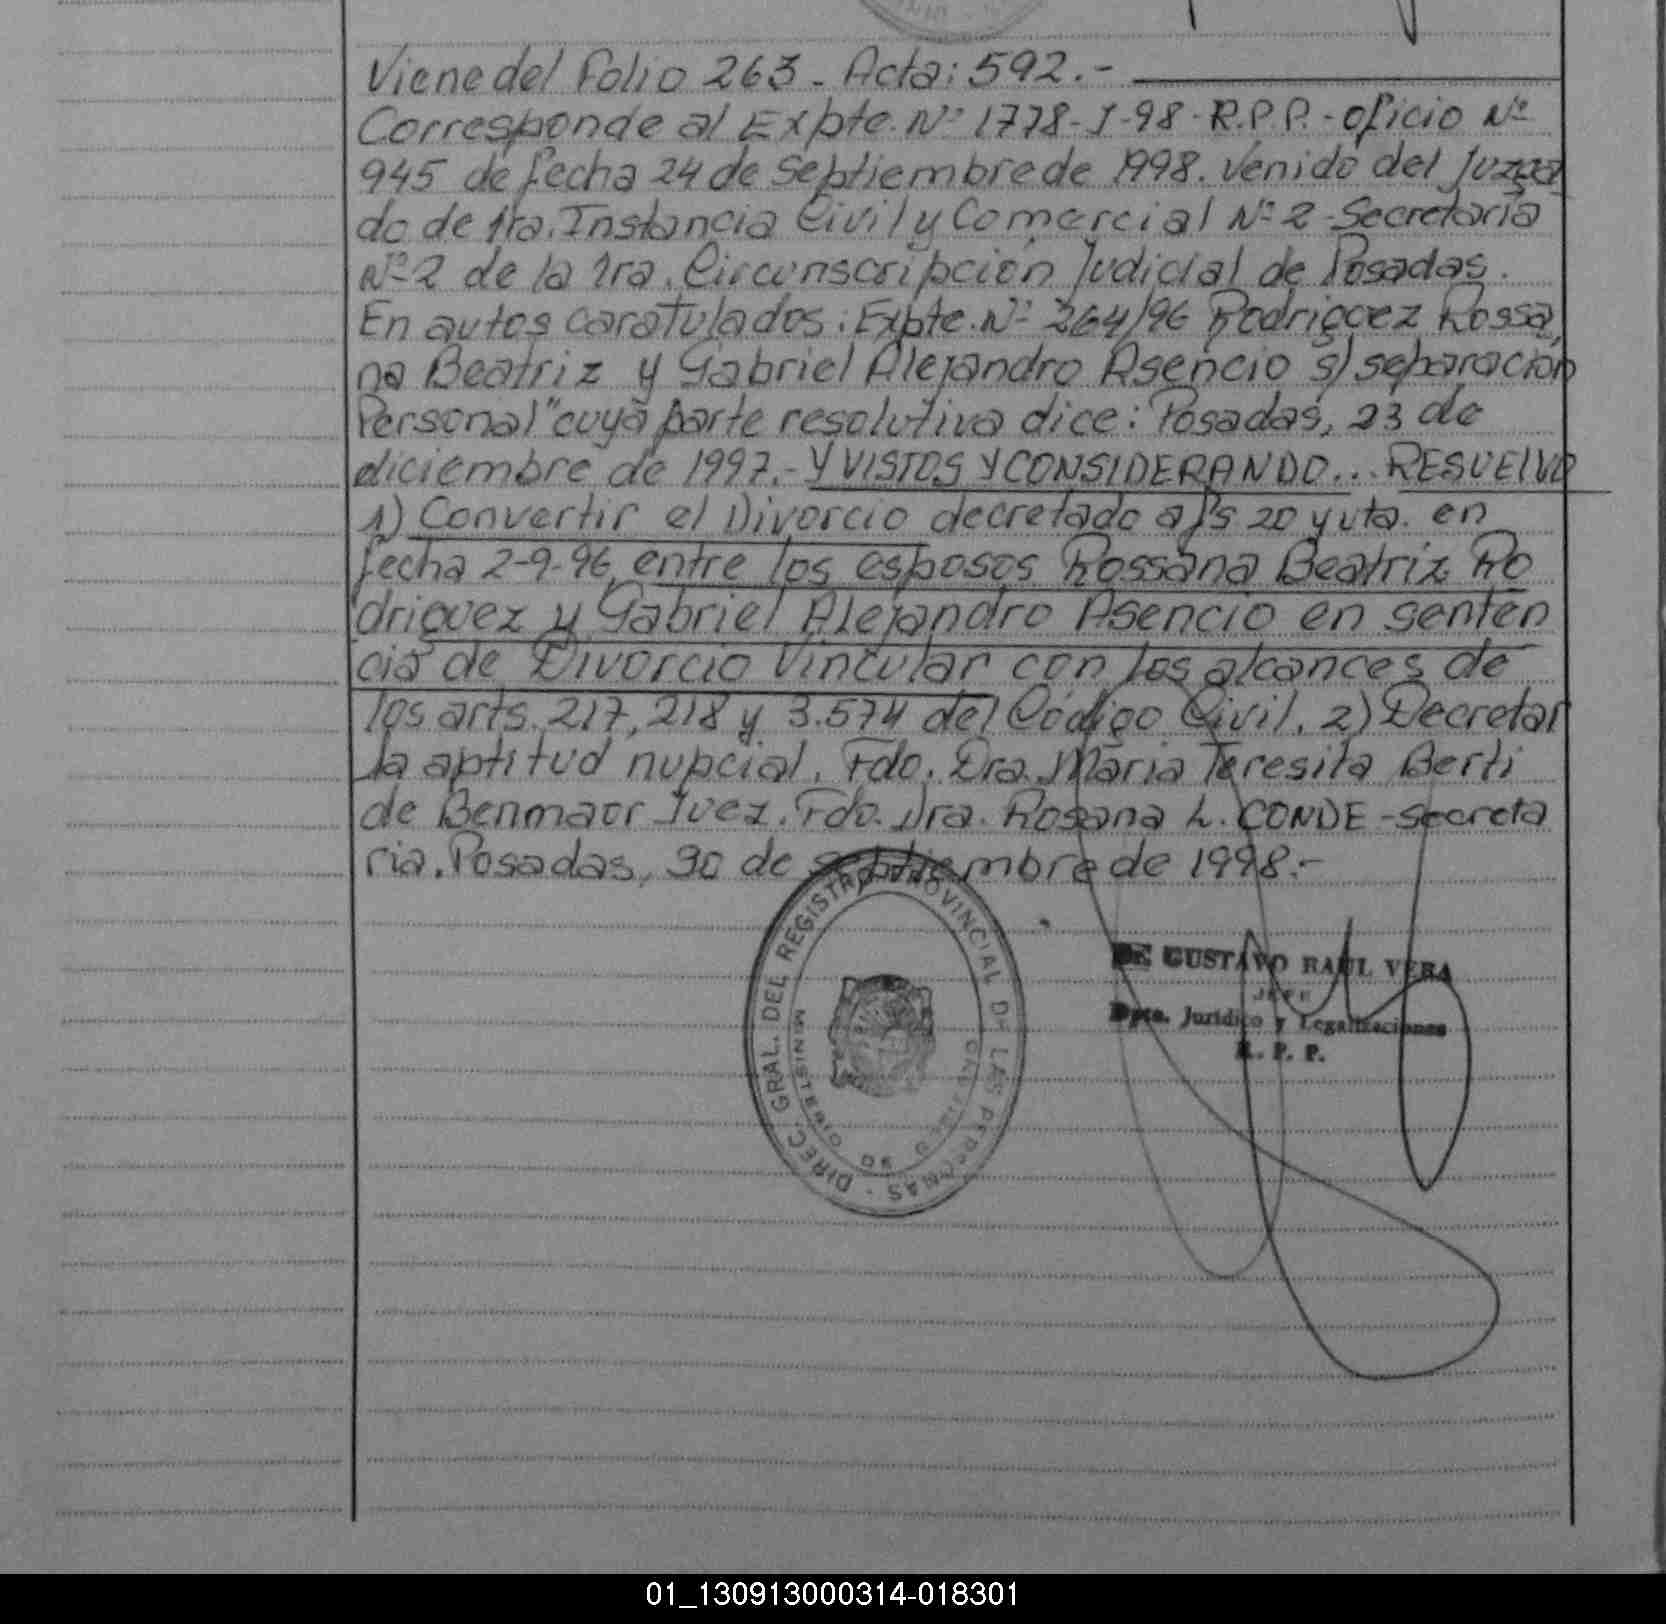 Viene del Folio 263 - Acta: 592.-
Corresponde al Expte. Nº 1778-J-98-R.P.P. - oficio Nº
945 de fecha 24 de septiembre de 1998. Venido del Juzga
do de 1ra. Instancia Civil y Comercial Nº 2 - Secretaria
Nº 2 de la 1ra. Circunscripcion Judicial de Posadas.
En autos caratulados: Expte. Nº 264/96 Rodriguez Rossa
na Beatriz y Gabriel Alejandro Asencio s/ separación
Personal" cuya parte resolutiva dice: Posadas, 23 de
diciembre de 1997.- Y VISTOS Y CONSIDERANDO... RESUELVO
1) Convertir el Divorcio decretado a fs 20 y vta. en
fecha 2-9-96, entre los esposos Rossana Beatriz Ro
driguez y Gabriel Alejandro Asencio en senten
cia de Divorcio Vincular con los alcances de
los arts. 217, 218 y 3.574 del Código Civil. 2) Decretar
la aptitud nupcial. Fdo. Dra. Maria Teresita Berti
de Benmaor Juez. Fdo. Dra. Rosana L. CONDE - secreta
ria. Posadas, 30 de septiembre de 1998.-
DIREC. GRAL. DEL REGISTRO PROVINCIAL DE LAS PERSONAS
MINISTERIO DE GOBIERNO
GUSTAVO RAUL VERA
JEFE
Dpto. Juridico y Legalizaciones
R. P. P.
01_130913000314-018301